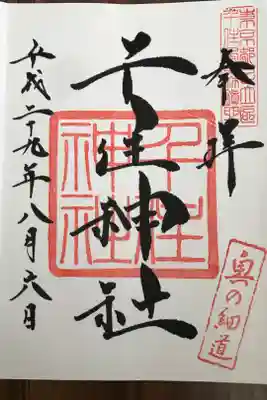 奉拝
千住神社
千住神社
平成二十九年八月六日
奥の細道